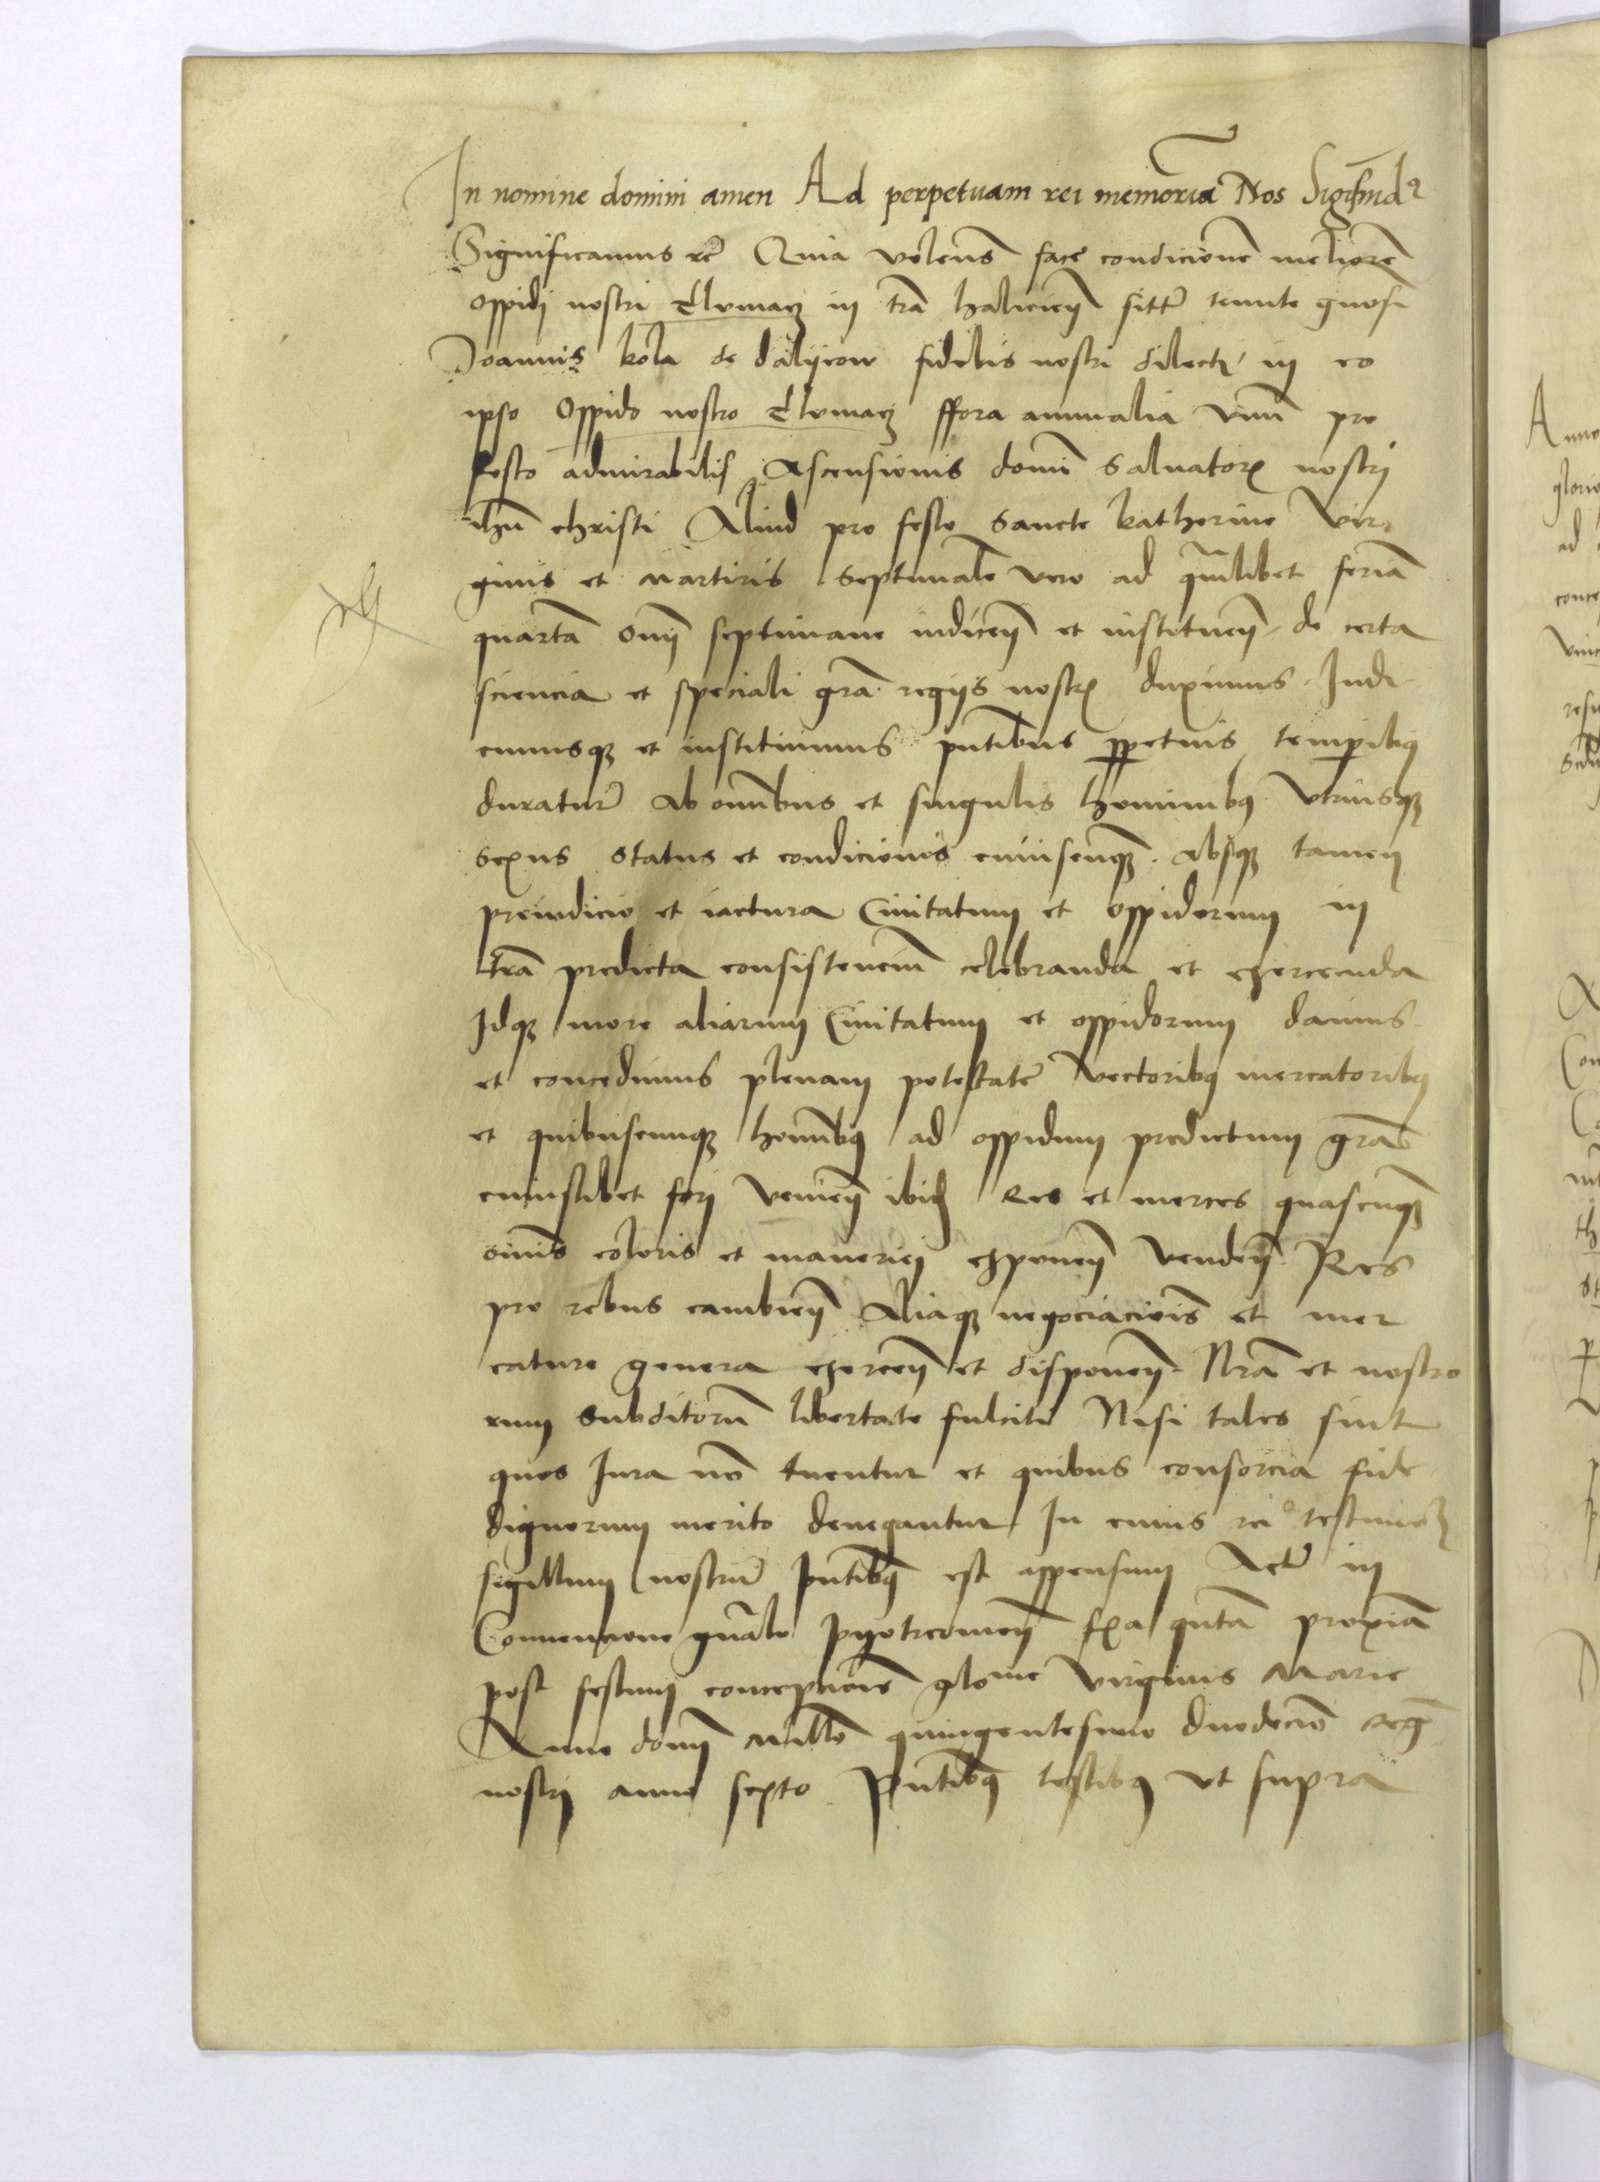 In nomine domini amen Ad perpetuam rei memoriā Nos Sigismūdꝰ
Significamus rē Quia volentes facē condicionē meliorē
oppidi nostri Tlumacz in trā haliciēn sittū tenute gnosi
Joannis kola de dalijeow fidelis nostri dilecti in eo
ipso Oppido nostro Tlumacz ffora annualia vnū pro
festo admirabilis Ascensionis domī Saluatorꝭ nostri
ihū christi Aliud pro festo Sancte katherine Vir
ginis et Martiris Septimale vero ad qūālibet feriā
quartā omī septimane indicēn et instituēn de certa
sciencia et speciali grā regijs nostrꝭ duximus Indi
cimusqꝫ et instituimus pntibus ꝑpetuis temporibꝰ
duraturꝭ ab omībus et singulis hominibꝰ Vtriusqꝫ
sexus status et condicionis cuiuscunqꝫ absqꝫ tamen
preiudicio et iactura Ciuitatum et oppidorum in
trā predicta consistenciū celebranda et exercenda
Idqꝫ more aliarum Ciuitatum et oppidorum damus
et concedimus plenam potestatē Vectoribꝰ mercatoribꝰ
et quibuscunqꝫ homībꝰ ad oppidum predictum grā
cuiuslibet fori Veniēn ibidē Res et merces quascunqꝫ
omīs coloris et maneriei exponēn vendēn Res
pro rebus cambiēn Aliaqꝫ negociaciōis et mer
cature genera exercēn et disponēn Nrā et nostro
rum subditorū libertate fulciti Nisi tales sint
quos Jura nō tuentur et quibus consorcia fide
dignorum merito denegantur In cuius rei testimoniū
sigillum nostrū pntibꝰ est appensum Actū in
Conuencione gnāle Pyotrcouiēn fia qūtā proxiā
post festum concepciōis gloīue Virginis Marie
Anno domī Millō quingentesimo duodecīo regī
nostri anno sexto Pntibꝰ testibꝰ vt supra